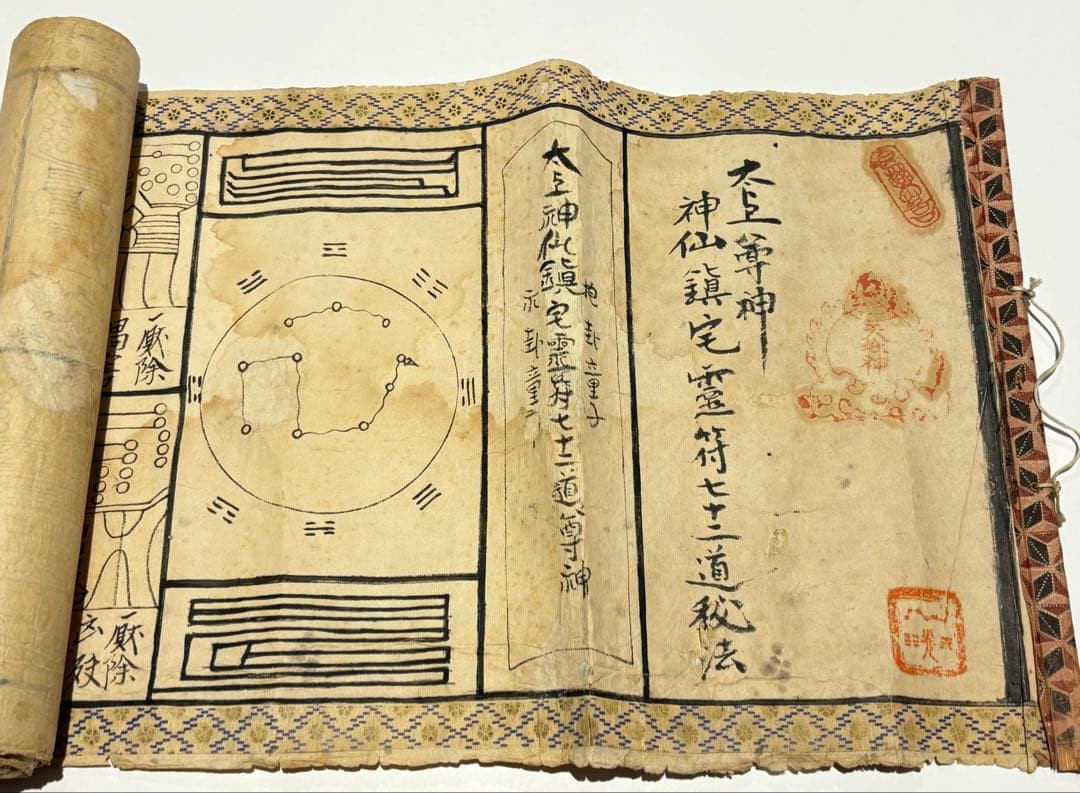 太上尊神
神仙鎮宅靈符七十二道秘法
抱卦童子
太上神仙鎮宅靈符七十二道尊神
示卦童
一厭除
一厭除